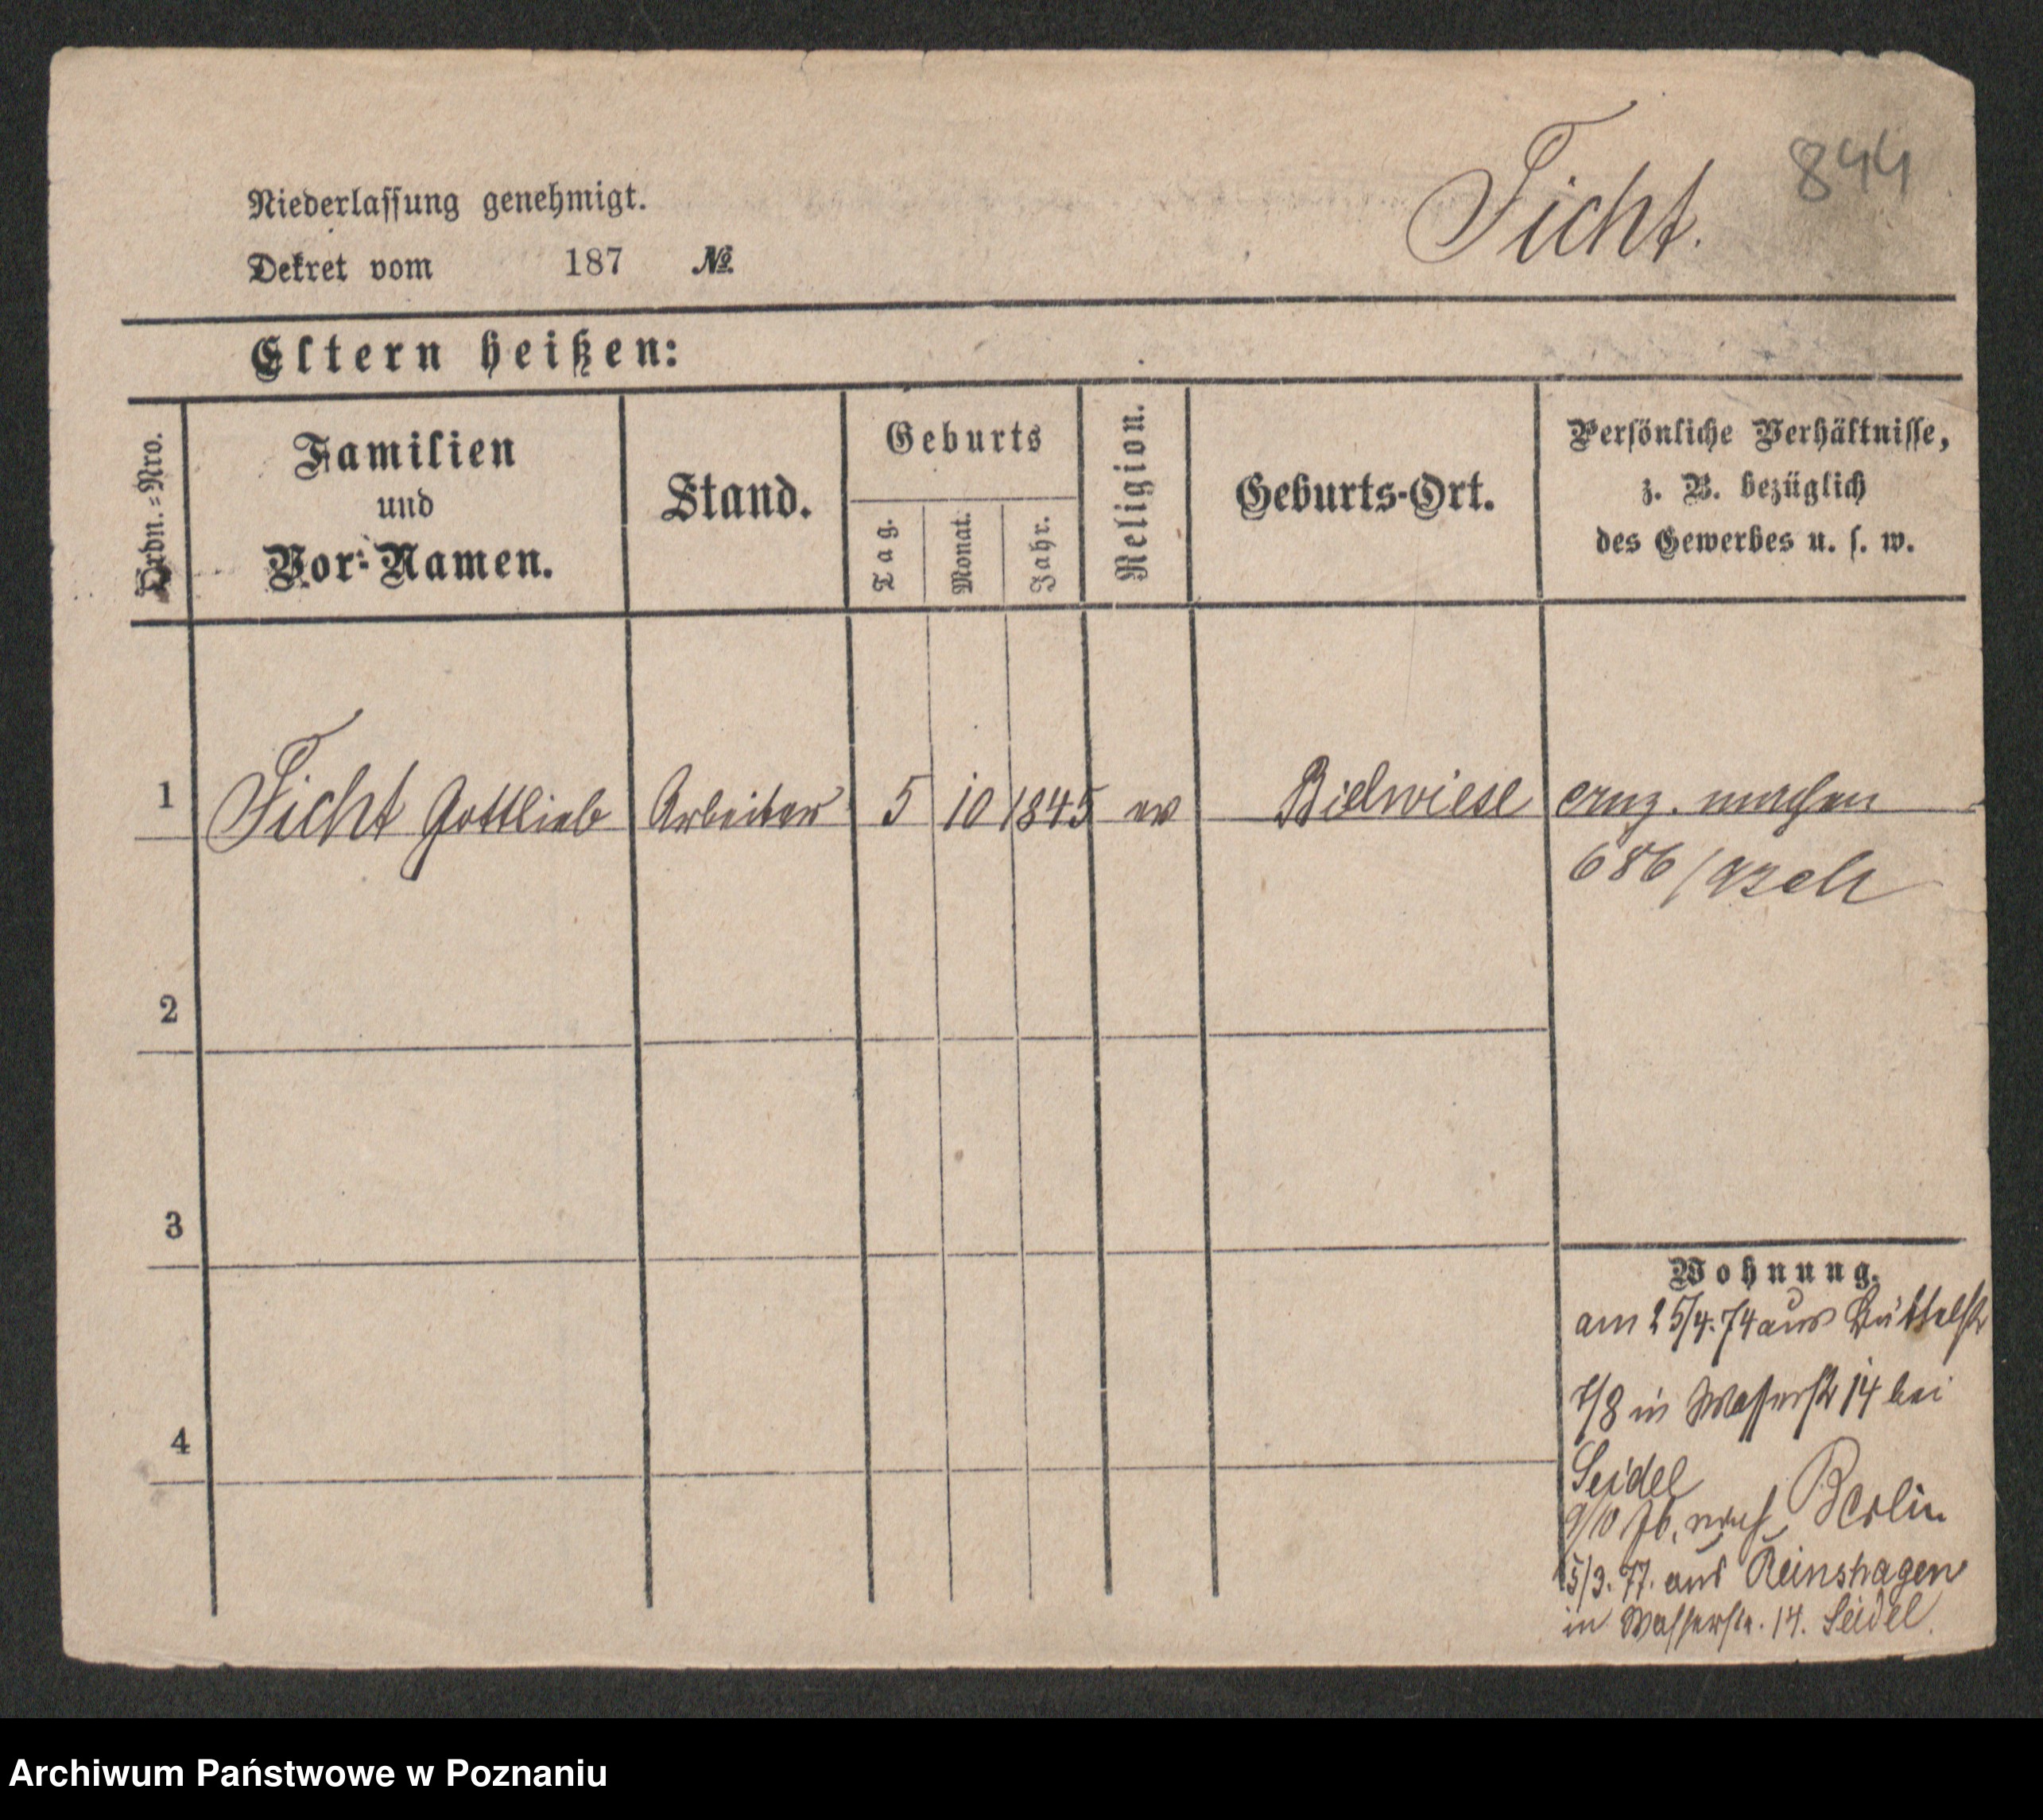 844
Ficht.
Niederlassung genehmigt.
Dekret vom 187 №
Eltern heißen:
Ordn.=Nro.
Familien
und
Vor=Namen.
Stand.
Geburts
Tag.
Monat.
Jahr.
Religion.
Geburts-Ort.
Persönliche Verhältnisse,
z. B. bezüglich
des Gewerbes u. s. w.
1 Ficht Gottlieb Arbeiter 5 10 1845 ev Bielwiese
686/
2
3
4
Wohnung.
am 25/4.74 aus Büttelstr
7/8 in Wasserstr 14 bei
Seidel
9/10 nach Berlin
5/3.77. aus Reinshagen
in Wasserstr. 14. Seidel.
Archiwum Państwowe w Poznaniu